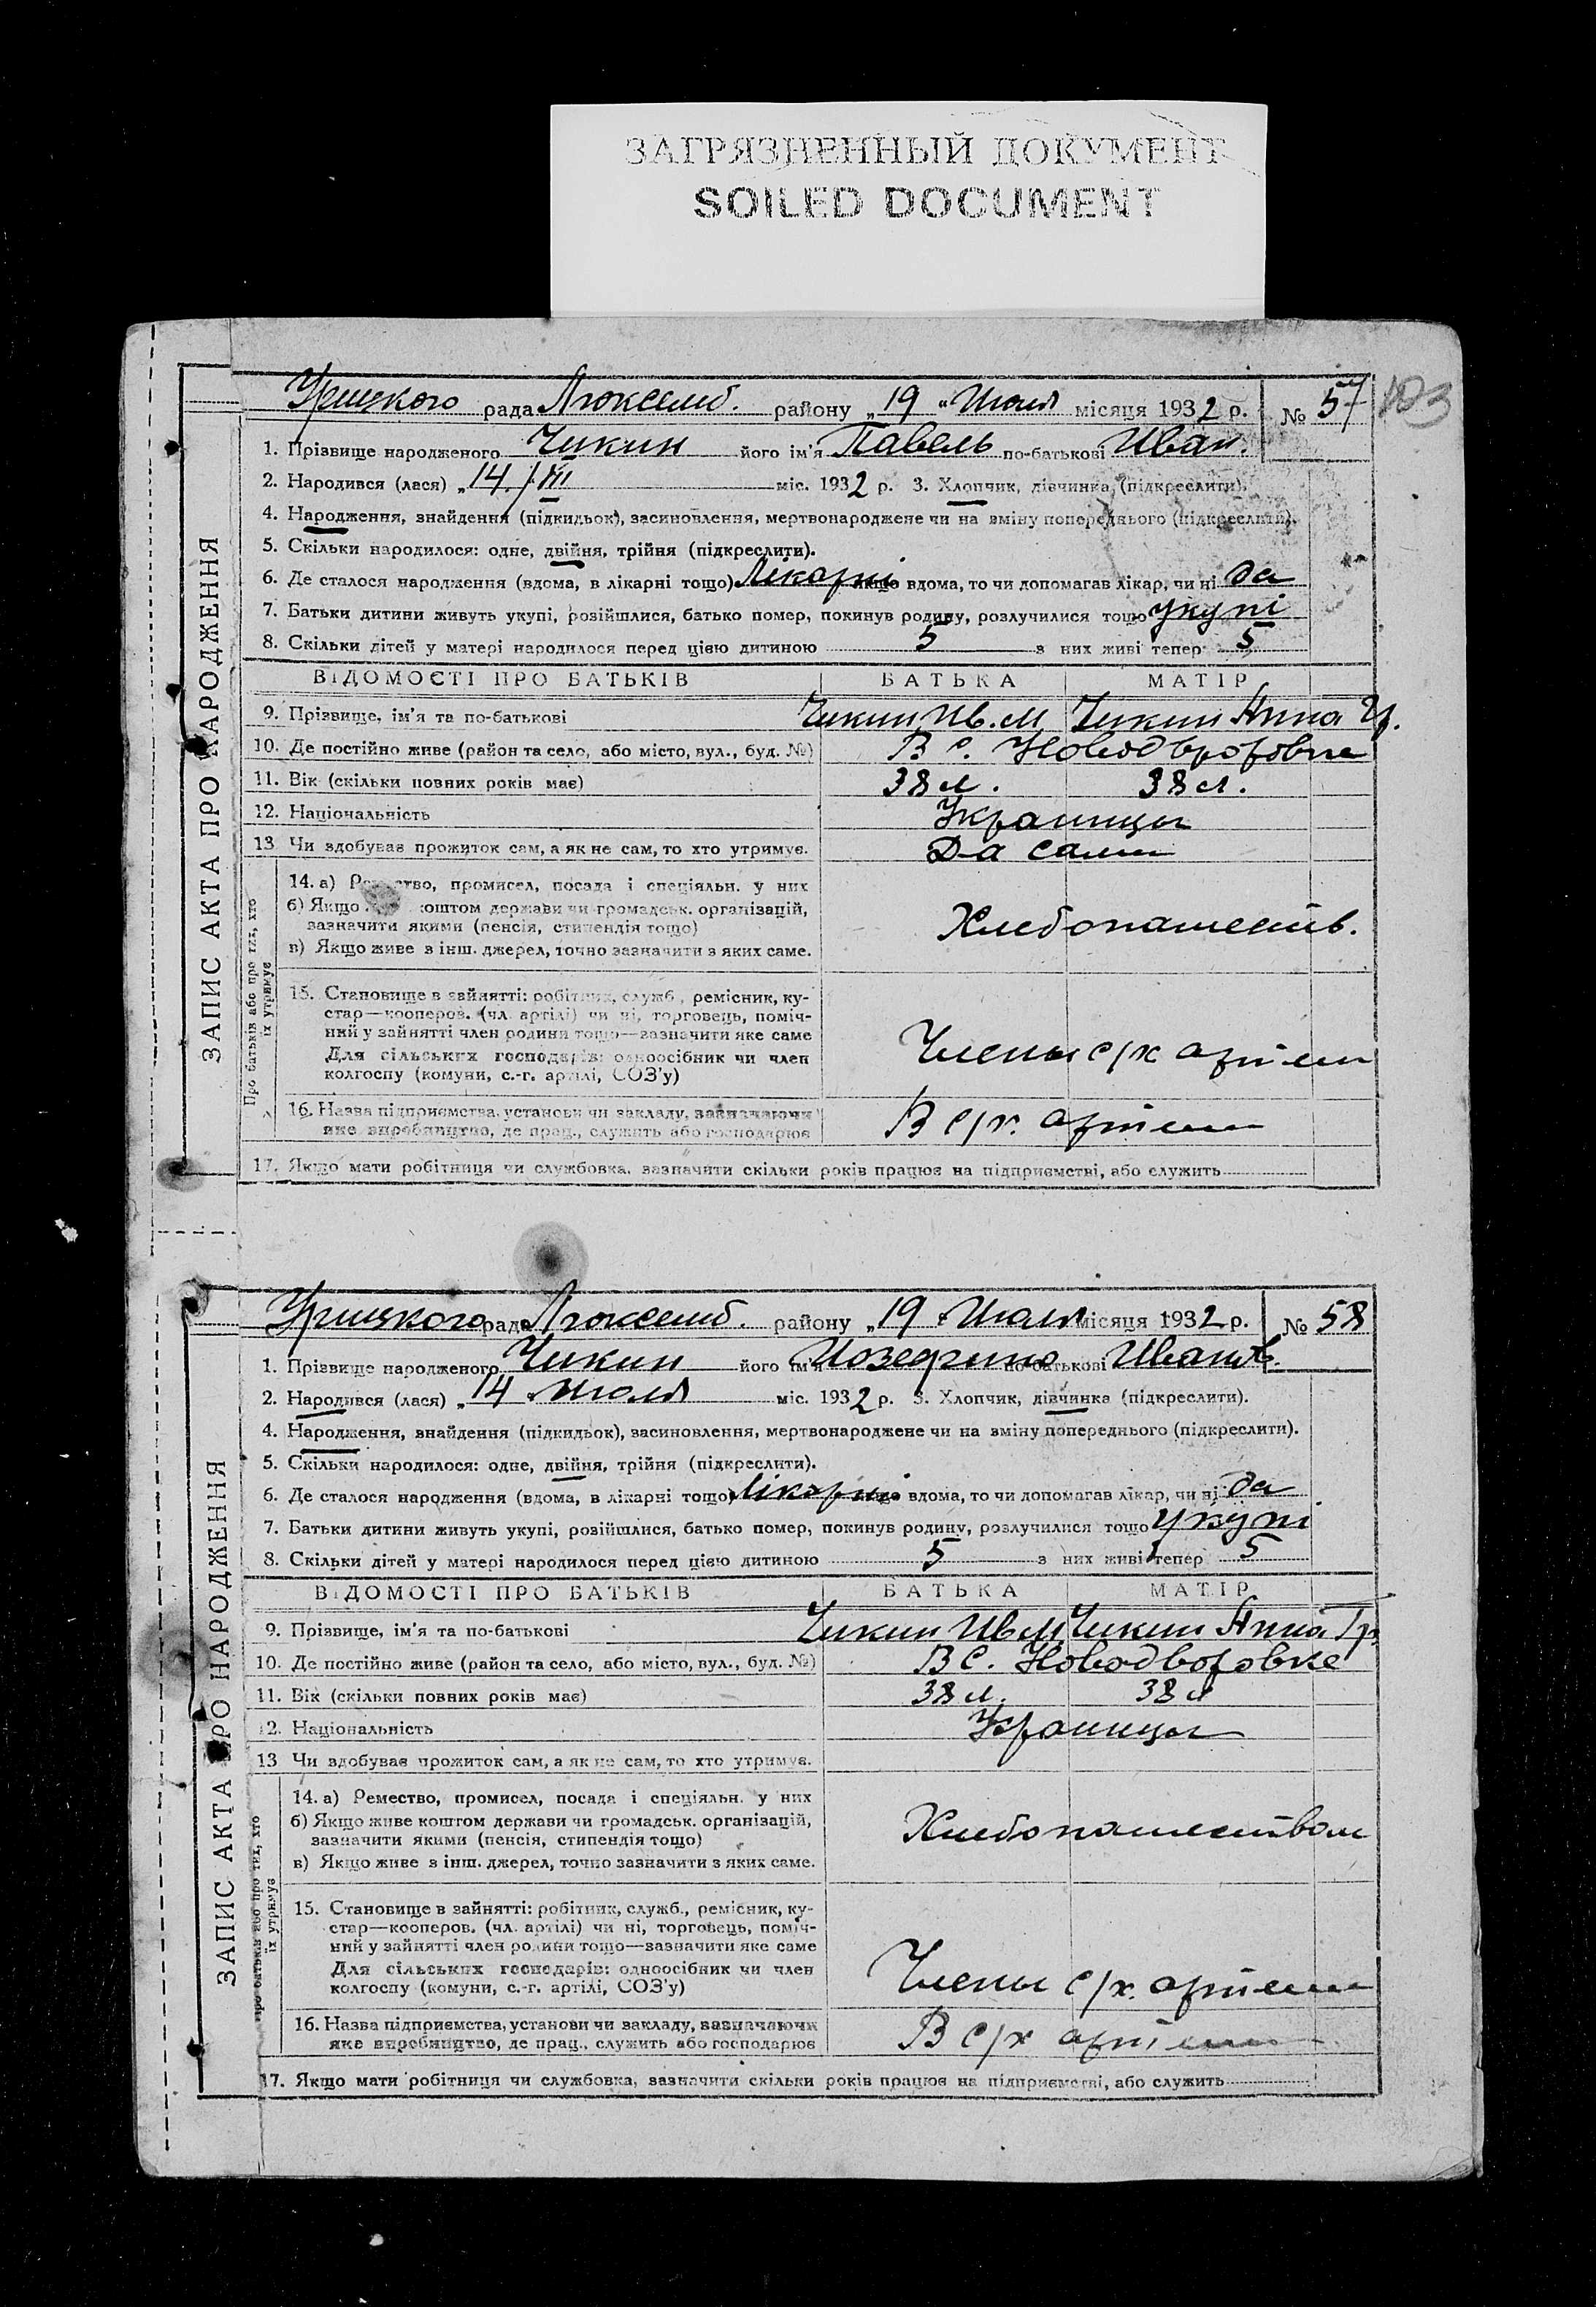 ЗАГРЯЗНЕННЫЙ ДОКУМЕНТ
SOILED DOCUMENT
103
ЗАПИС АКТА ПРО НАРОДЖЕННЯ
Урицкого рада Люксемб. району „19 " Июля місяця 1932 р. № 57
1. Прізвище народженого Чикин його ім'я Павель по-батькові Иван.
2. Народився (лася) „14 / VII міс. 1932 р. 3. Хлопчик, дівчинка, (підкреслити).
4. Народження, знайдення (підкидьок), засиновлення, мертвонароджене чи на зміну попереднього (підкреслити).
5. Скільки народилося: одне, двійня, трійня (підкреслити).
6. Де сталося народження (вдома, в лікарні тощо) Лікарні якщо вдома, то чи допомагав лікар, чи ні да
7. Батьки дитини живуть укупі, розійшлися, батько помер, покинув родину, розлучилися тощо укупі
8. Скільки дітей у матері народилося перед цією дитиною 5 з них живі тепер 5
ВІДОМОСТІ ПРО БАТЬКІВ БАТЬКА МАТІР
9. Прізвище, ім'я та по-батькові Чикин Ив. М Чикин Анна Гр.
10. Де постійно живе (район та село, або місто, вул., буд. №) В С. Новодворовке
11. Вік (скільки повних років має) 38 л. 38 л.
12. Національність Украинцы
13 Чи здобуває прожиток сам, а як не сам, то хто утримує. Да сами
Про батьків або про тих, хто
їх утримує
14. а) Ремество, промисел, посада і спеціяльн. у них
б) Якщо коштом держави чи громадськ. організацій,
зазначити якими (пенсія, стипендія тощо)
в) Якщо живе з інш. джерел, точно зазначити з яких саме.
Хлебопашеств.
15. Становище в зайнятті: робітник, служб., ремісник, ку-
стар—кооперов. (чл. артілі) чи ні, торговець, поміч-
ний у зайнятті член родини тощо—зазначити яке саме
Для сільських господарів: одноосібник чи член
колгоспу (комуни, с.-г. артілі, СОЗ'у)
Члены с/х артели
16. Назва підприємства, установи чи закладу, зазначаючи
яке виробництво, де прац., служить або господарює
В с/х. артели
17. Якщо мати робітниця чи службовка, зазначити скільки років працює на підприємстві, або служить
ЗАПИС АКТА ПРО НАРОДЖЕННЯ
Урицкого рада Люксемб. району „19 " Июля місяця 1932 р. № 58
1. Прізвище народженого Чикин його ім'я Иозефина по-батькові Ивановн.
2. Народився (лася) „14 Июля міс. 1932 р. 3. Хлопчик, дівчинка (підкреслити).
4. Народження, знайдення (підкидьок), засиновлення, мертвонароджене чи на зміну попереднього (підкреслити).
5. Скільки народилося: одне, двійня, трійня (підкреслити).
6. Де сталося народження (вдома, в лікарні тощо) Лікарні якщо вдома, то чи допомагав лікар, чи ні да
7. Батьки дитини живуть укупі, розійшлися, батько помер, покинув родину, розлучилися тощо укупі
8. Скільки дітей у матері народилося перед цією дитиною 5 з них живі тепер 5
ВІДОМОСТІ ПРО БАТЬКІВ БАТЬКА МАТІР
9. Прізвище, ім'я та по-батькові Чикин Ив М Чикин Анна Гр
10. Де постійно живе (район та село, або місто, вул., буд. №) В С. Новодворовке
11. Вік (скільки повних років має) 38 л. 38 л
12. Національність Украинцы
13 Чи здобуває прожиток сам, а як не сам, то хто утримує.
Про батьків або про тих, хто
їх утримує
14. а) Ремество, промисел, посада і спеціяльн. у них
б) Якщо живе коштом держави чи громадськ. організацій,
зазначити якими (пенсія, стипендія тощо)
в) Якщо живе з інш. джерел, точно зазначити з яких саме.
Хлебопашеством
15. Становище в зайнятті: робітник, служб., ремісник, ку-
стар—кооперов. (чл. артілі) чи ні, торговець, поміч-
ний у зайнятті член родини тощо—зазначити яке саме
Для сільських господарів: одноосібник чи член
колгоспу (комуни, с.-г. артілі, СОЗ'у)
Члены с/х. артели
16. Назва підприємства, установи чи закладу, зазначаючи
яке виробництво, де прац., служить або господарює
В с/х артели
17. Якщо мати робітниця чи службовка, зазначити скільки років працює на підприємстві, або служить